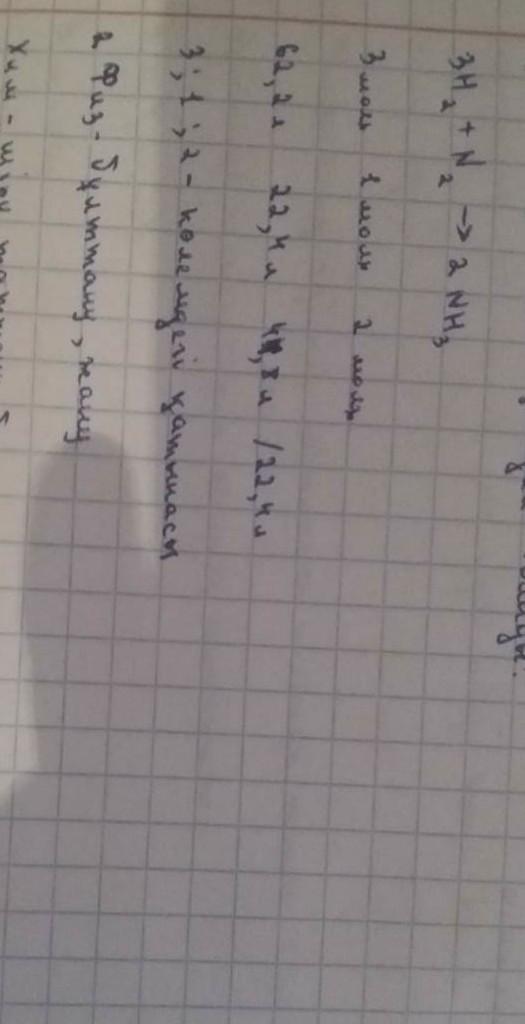 3H2 + N2 → 2 NH3
3 моль 1 моль 2 моль
62,2 л 22,4 л 44,8 л / 22,4 л
3 ; 1 ; 2 - көлемдегі қатынасы
2 Физ - бұлттану, жану
Хим -